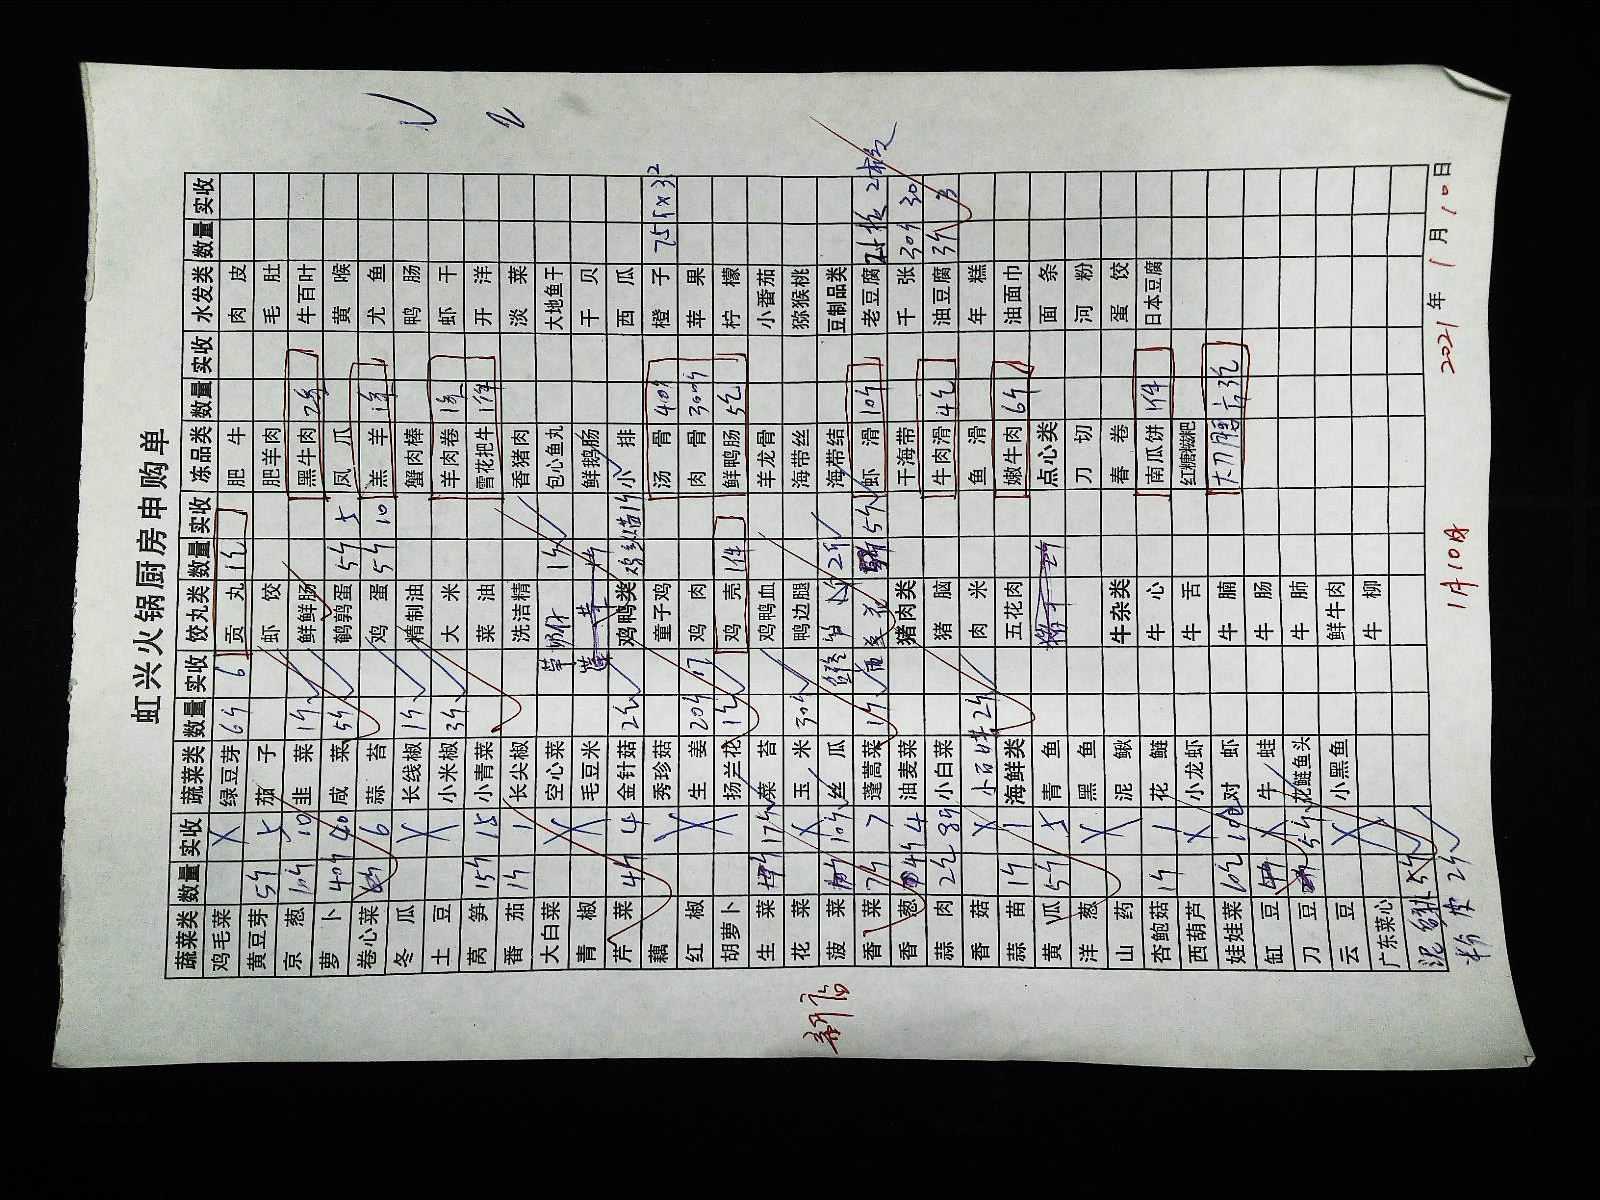 虹兴火锅厨房申购单
蔬菜类 数量 实收 蔬菜类 数量 实收 饺丸类 数量 实收 冻品类 数量 实收 水发类 数量 实收
鸡毛菜 绿豆芽 6斤 6 贡丸 1包 肥牛 肉皮
黄豆芽 5斤 5 茄子 虾饺 肥羊肉 毛肚
京葱 10斤 10 韭菜 1斤 鲜鲜肠 黑牛肉 2条 牛百叶
萝卜 40斤 40 咸菜 5斤 鹌鹑蛋 5斤 5 凤爪 黄喉
卷心菜 6斤 6 蒜苔 鸡蛋 5斤 10 羔羊 1条 尤鱼
冬瓜 长线椒 1斤 精制油 蟹肉棒 鸭肠
土豆 小米椒 3斤 大米 羊肉卷 1条 虾干
莴笋 15斤 15 小青菜 菜油 雪花把牛 1件 开洋
番茄 1斤 1 长尖椒 洗洁精 香猪肉 淡菜
大白菜 空心菜 1斤 包心鱼丸 大地鱼干
青椒 毛豆米 鲜鹅肠 干贝
芹菜 4斤 4 金针菇 2斤 鸡鸭类 小排 西瓜
藕 秀珍菇 童子鸡 汤骨 40斤 橙子 75斤×3.2
红椒 生姜 20斤 鸡肉 肉骨 30斤 苹果
胡萝卜 扬兰花 1斤 鸡壳 1件 鲜鸭肠 5包 柠檬
生菜 17斤 菜苔 鸡鸭血 羊龙骨 小番茄
花菜 玉米 30斤 鸭边腿 海带丝 猕猴桃
菠菜 10斤 丝瓜 2斤 海带结 豆制品类
香菜 7斤 7 蓬蒿菜 1斤 西兰花 5斤 虾滑 10斤 老豆腐 2板 2板
香葱 4斤 4 油麦菜 猪肉类 干海带 千张 30斤 30
蒜肉 2包 8斤 小白菜 猪脑 牛肉滑 4包 油豆腐 3斤 3
香菇 2斤 肉米 鱼滑 年糕
蒜苗 1斤 1 海鲜类 五花肉 嫩牛肉 6斤 油面巾
黄瓜 5斤 5 青鱼 点心类 面条
洋葱 黑鱼 刀切 河粉
山药 泥鳅 牛杂类 春卷 蛋饺
杏鲍菇 1斤 1 花鲢 牛心 南瓜饼 1件 日本豆腐
西葫芦 小龙虾 牛舌 红糖糍粑
娃娃菜 10包 10包 对虾 牛腩 3包
缸豆 牛蛙 牛肠
刀豆 5斤 花鲢鱼头 牛肺
云豆 小黑鱼 鲜牛肉
广东菜心 牛柳
5斤
粉皮 2斤
新店
1月10日
2021年1月10日